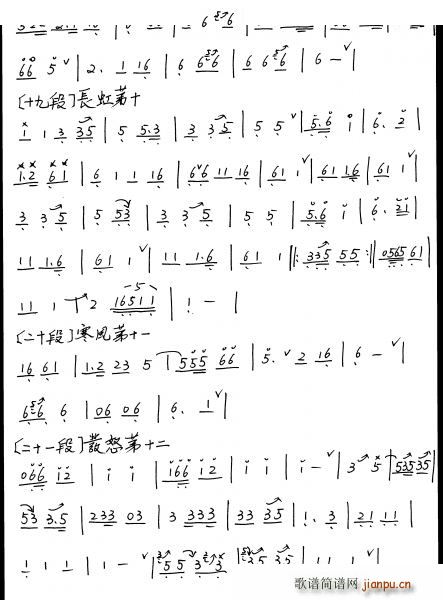 6 6 5 | 2. 1 16 | 6 6 6 | 6 6 6 | 6 - |
[十九段]長虹第十
1 1 3 35 | 5 5.3 | 3 3 5 | 5 5 | 5.6 i | 6. 2 |
1.2 61 | 6 1 1 16 | 666 11 16 | 61 1 | 61 16 | 61 1 |
3 3 5 | 5 53 | 3 3 5 | 5 5 | 5.6 i | 6. 21 |
11 1.6 | 61 1 | 11 1.6 | 61 1 |: 335 55 :| 0565 61 |
11 1 2 16511 | 1 - |
[二十段]寒風第十一
16 61 | 1.2 23 5 | 555 66 | 5. 2 16 | 6 - |
6 6 6 | 06 06 | 6. 1 |
[二十一段]發怒第十二
066 i2 | i i | i66 i2 | i i | i - | 3 5 | 535 35 |
53 3.5 | 233 03 | 3 333 | 33 35 | 1. 3 | 21 11 |
1 1 1 | 1 - |
歌谱简谱网
jianpu.cn